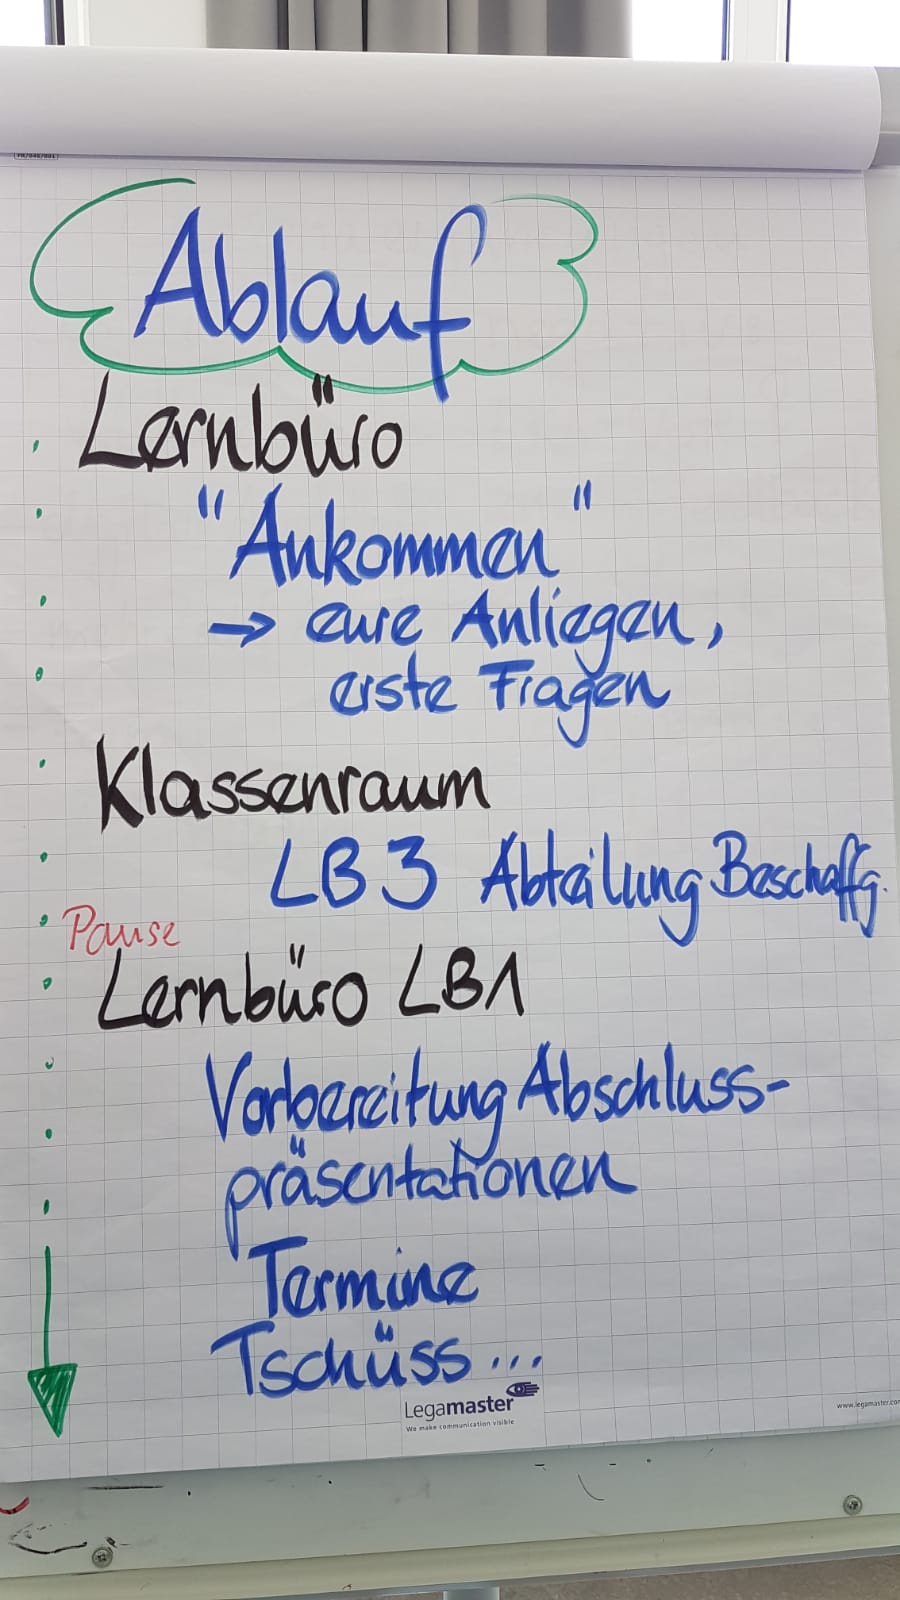 Ablauf
Lernbüro
"Ankommen"
→ eure Anliegen,
erste Fragen
Klassenraum
LB 3 Abteilung Beschaffg.
Pause
Lernbüro LB1
Vorbereitung Abschluss-
präsentationen
Termine
Tschüss...
Legamaster
We make communication visible